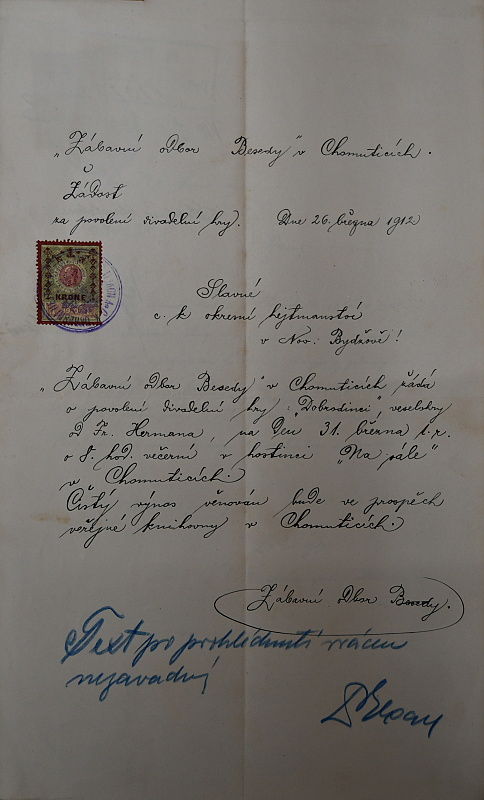 „Zábavní odbor Besedy" v Chomuticích.
Žádost
za povolení divadelní hry. Dne 26. března 1912
KRONE
Slavné
c. k okresní hejtmanství
v Nov. Bydžově!
„Zábavní odbor Besedy" v Chomuticích žádá
o povolení divadelní hry: „Dobrodinci", veselohry
od Fr. Hermana, na den 31. března t. r.
o 8. hod. večerní v hostinci „Na sále"
v Chomuticích.
Čistý výnos věnován bude ve prospěch
veřejné knihovny v Chomuticích.
Zábavní Odbor Besedy.
Text po prohlédnutí vrácen
nezávadný